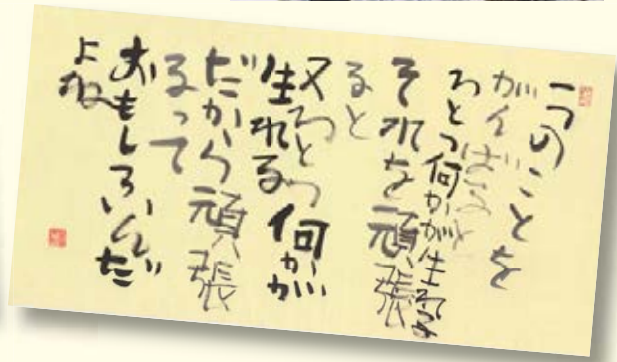 一つのことを
がんばると
ひとつ何かが生れる
それを頑張
ると
又ひとつ何かが
生れる
だから頑張
るって
おもしろいんだ
よね